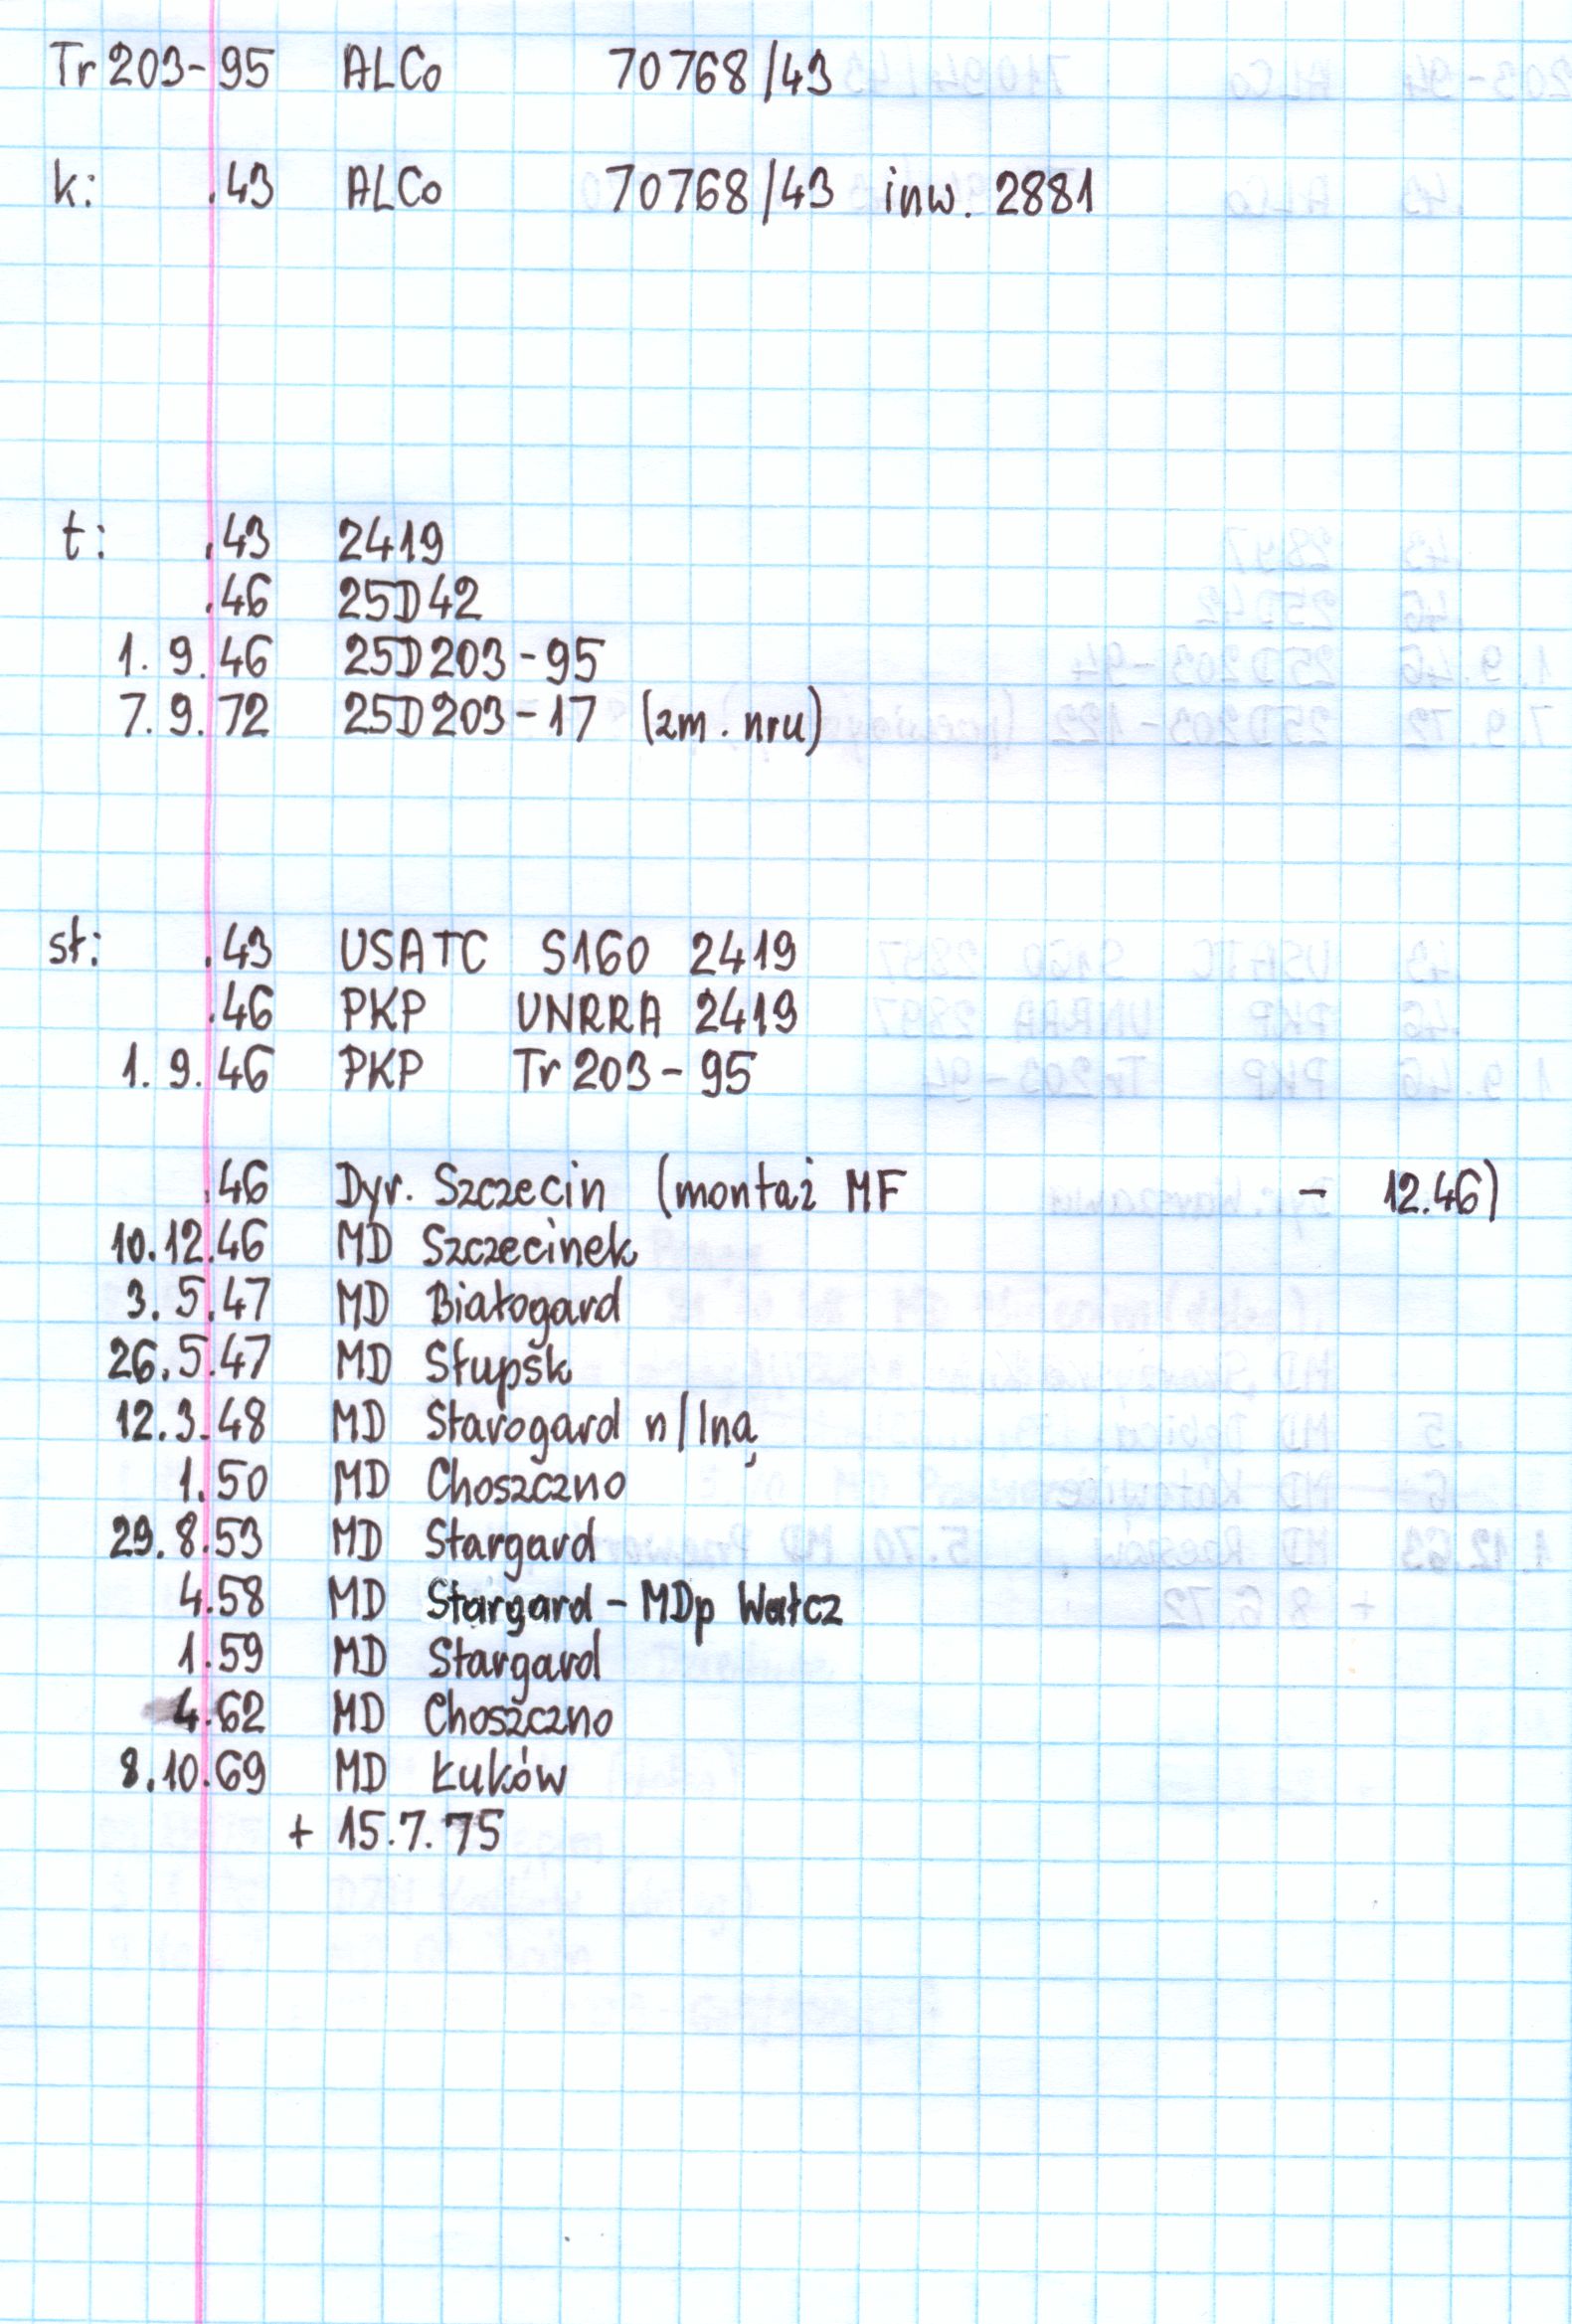 Tr 203-95 ALCo 70768/43
k: .43 ALCo 70768/43 inw. 2881
t: .43 2419
.46 25D42
1. 9.46 25D203-95
7. 9.72 25D203-17 (zm. nru)
st: .43 USATC S160 2419
.46 PKP UNRRA 2419
1. 9.46 PKP Tr 203-95
.46 Dyr. Szczecin (montaż MF - 12.46)
10.12.46 MD Szczecinek
3. 5.47 MD Białogard
26.5.47 MD Słupsk
12.3.48 MD Starogard n/Iną
1.50 MD Choszczno
29.8.53 MD Stargard
4.58 MD Stargard - MDp Wałcz
1.59 MD Stargard
4.62 MD Choszczno
8.10.69 MD Łuków
+ 15.7.75